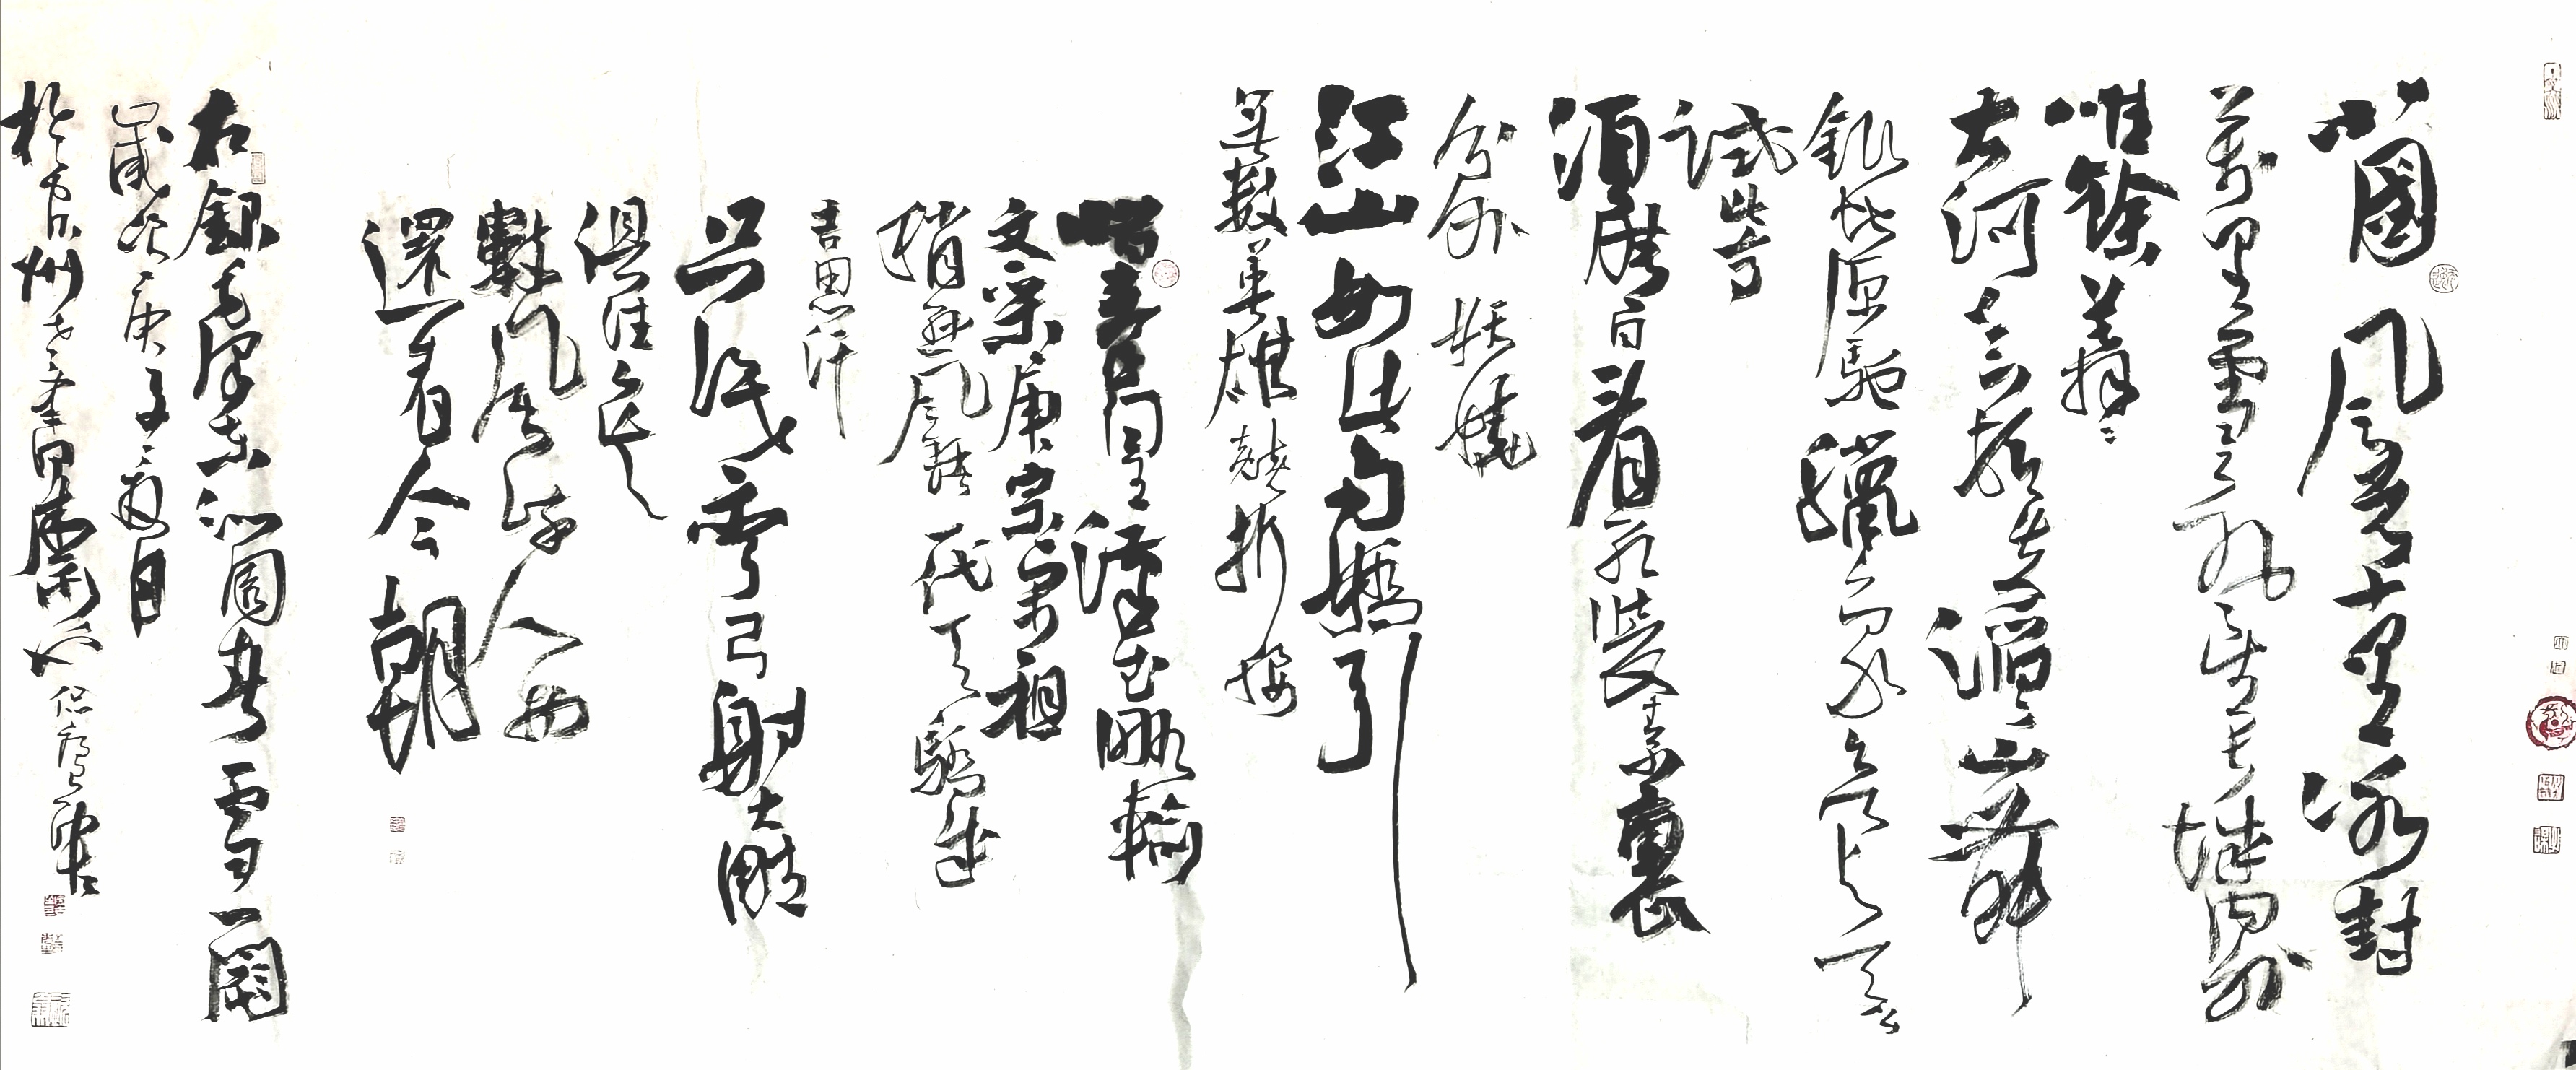 北國風光千里冰封
萬里雪飄望長城內外
唯餘莽莽
大河上下頓失滔滔山舞
銀蛇原馳蠟象欲與天公
試比高
須晴日看紅裝素裹
分外妖嬈
江山如此多嬌引
無數英雄競折腰
惜秦皇漢武略輸
文采唐宗宋祖
稍遜風騷一代天驕成
吉思汗
只識彎弓射大雕
俱往矣
數風流人物
還看今朝
右錄毛澤東沁園春雪一闋
歲次庚子夏月
於